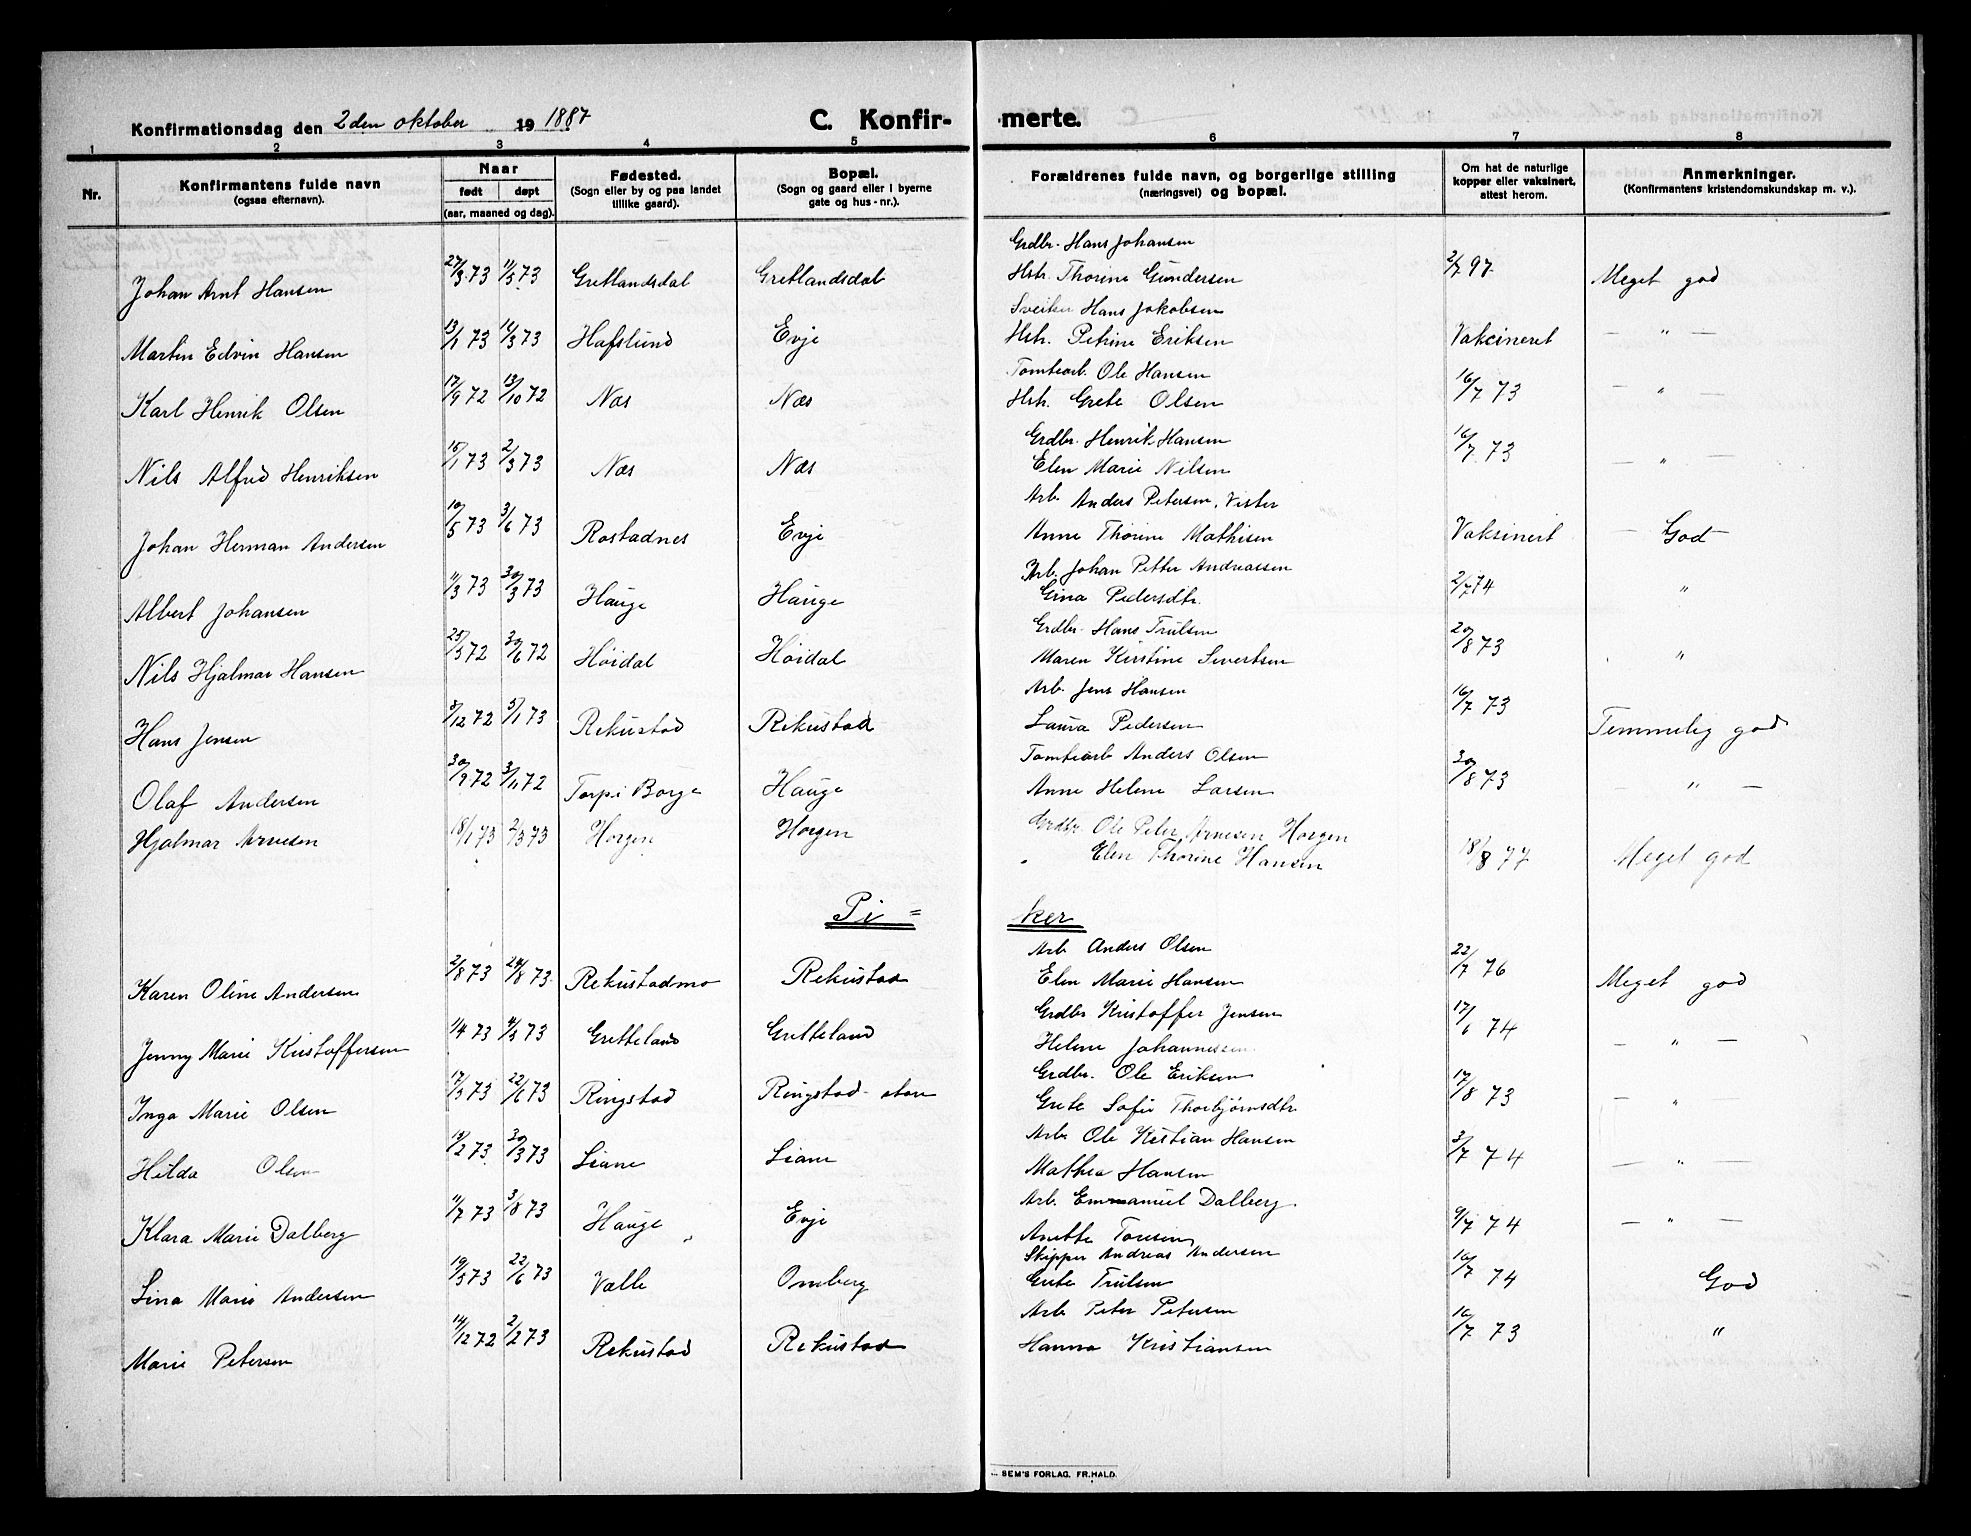 Konfirmationsdag den 2den oktober 19 1887 C. Konfir- merte.
1 2 3 4 5 6 7 8
Nr. Konfirmantens fulde navn (ogsaa efternavn). Naar født døpt (aar, maaned og dag). Fødested. (Sogn eller by og paa landet tillike gaard). Bopæl. (Sogn og gaard eller i byerne gate og hus-nr.). Forældrenes fulde navn, og borgerlige stilling (næringsvei) og bopæl. Om hat de naturlige kopper eller vaksinert, attest herom. Anmerkninger. (Konfirmantens kristendomskundskap m. v.).
Grdbr. Hans Johansen
Johan Arnt Hansen 27/3 73 11/5 73 Gretlandsdal Gretlandsdal Hstr. Thorine Gundersen 2/7 97. Meget god
Sveiser Hans Jakobsen
Martin Edvin Hansen 13/1 73 16/3 73 Hafslund Evje Hstr. Petrine Eriksen Vakcineret — " —
Tomtearb. Ole Hansen
Karl Henrik Olsen 17/9 72 13/10 72 Næs Næs Hstr. Grete Olsen 16/7 73 — " —
Grdbr. Henrik Hansen
Nils Alfred Henriksen 15/1 73 2/3 73 Næs Næs Elen Marie Nilsen 16/7 73 — " —
Arb. Anders Petersen, Vister
Johan Herman Andersen 10/5 73 3/6 73 Rostadnes Evje Anne Thorine Mathisen Vaksinert — God —
Arb. Johan Petter Andreassen
Albert Johansen 11/3 73 30/3 73 Hauge Hauge Gina Pedersdtr. 2/7 74 "
Grdbr. Hans Trulsen
Nils Hjalmar Hansen 25/5 72 30/6 72 Höidal Höidal Maren Kirstine Sivertsen 20/8 73 "
Arb. Jens Hansen
Hans Jensen 3/12 72 5/1 73 Rekustad Rekustad Laura Pedersen 16/7 73 Temmelig god
Tomtearb Anders Olsen
Olaf Andersen 30/9 72 3/11 72 Torpi Borge Hauge Anne Helene Larsen 30/8 73 — " —
Hjalmar Arnesen 18/1 73 2/3 73 Horgen Horgen Grdbr Ole Peter Arnesen Horgen
Elen Thorine Hansen 18/8 77 Meget god
Pi= ker
Arb Anders Olsen
Karen Oline Andersen 2/8 73 24/8 73. Rekustadmo Rekustad Elen Marie Hansen 22/7 76 Meget god
Grdbr Kristoffer Jensen
Jenny Marie Kristoffersen 1/4 73 4/5 73 Gretteland Gretteland Helene Johannessen 17/6 74 — " —
Grdbr. Ole Eriksen
Inga Marie Olsen 17/5 73 22/6 73 Ringstad Ringstad Grete Sofie Thorbjørnsdtr 17/8 73 — "
Arb Ole Kristian Hansen
Hilda Olsen 14/2 73. 30/3 73 Liane Liane Mathea Hansen 3/7 74 — " —
Arb. Emmanuel Dalberg
Klara Marie Dalberg 11/7 73 3/8 73 Hauge Evje Anette 9/7 74 — " —
Skipper Andreas Andersen
Lina Marie Andersen 19/5 73 22/6 73 Valle Omberg Grete Trulsen 16/7 74 God
Arb Peter Petersen
Marie Petersen 14/12 72 2/2 73 Rekustad Rekustad Hanna Kristiansen 16/7 73 "
SEM'S FORLAG. FR.HALD.